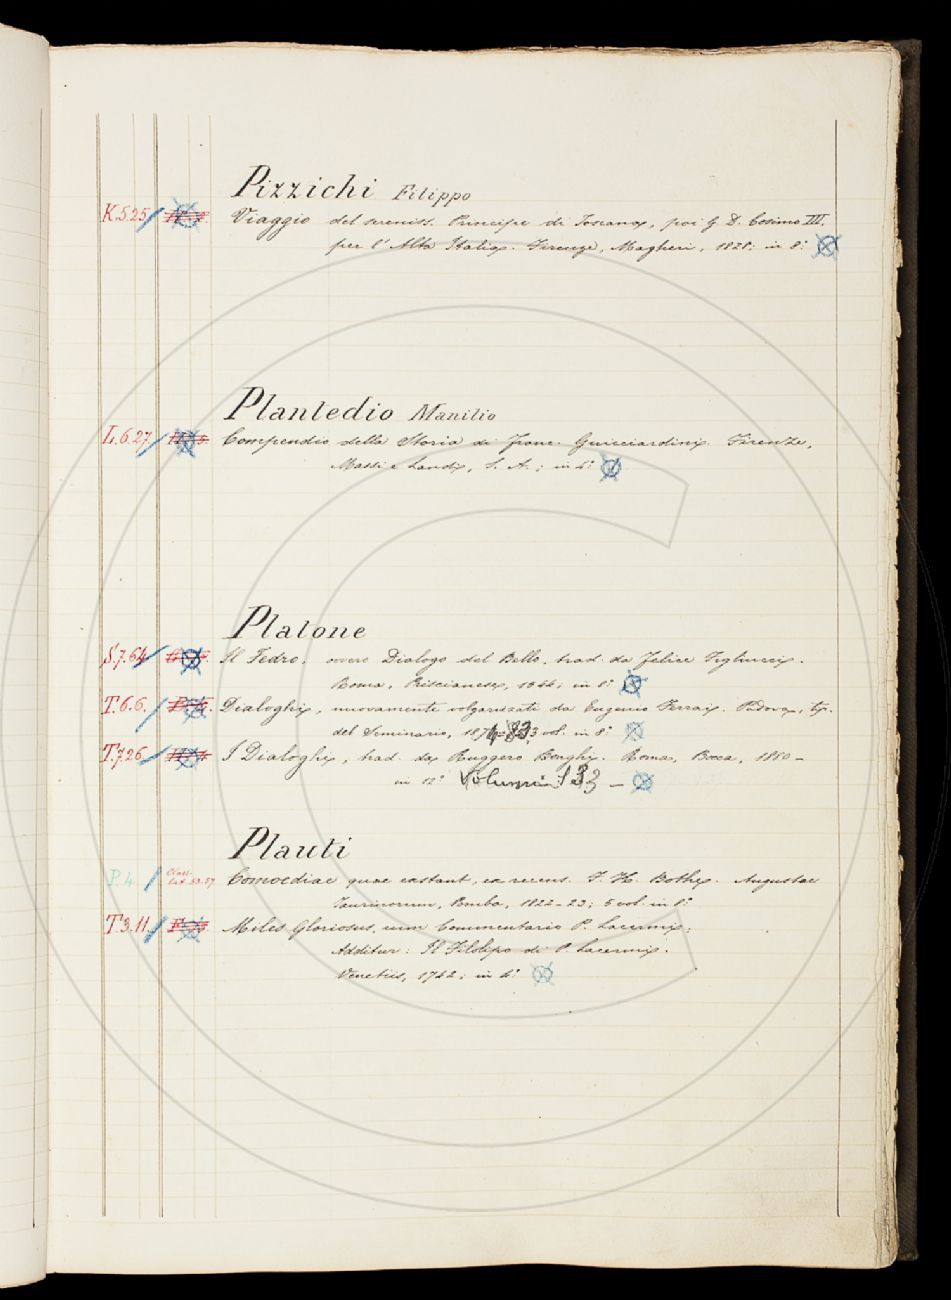 Pizzichi Filippo
K.5.25 Viaggio del sereniss. Principe di Toscana, poi G. D. Cosimo III.
per l'Alta Italia. Firenze, Magheri, 1828; in 8°
Plantedio Manilio
L.6.27 Compendio della Storia di Franc. Guicciardini. Firenze,
Massi e Landi, S. A.; in 4°
Platone
S.7.64 Il Fedro, ovvero Dialogo del Bello, trad. da Felice Figliucci.
Roma, Priscianese, 1544; in 8°
T.6.6. Dialoghi, nuovamente volgarizzati da Eugenio Ferrai. Padova, tip.
del Seminario, vol. in 8°
T.7.26 I Dialoghi, trad. da Ruggero Bonghi. Roma, Bocca, 1880 –
in 12° Volumi 13 –
Plauti
P.4. Class. Lat. 53.57 Comoediae quae extant, ex recens. F. H. Bothe. Augustae
Taurinorum, Pomba, 1822-23; 5 vol. in 8°
T.3.11 Miles Gloriosus, cum Commentario P. Lacermi;
Additur: Il Filolipo di P. Lacermi.
Venetiis, 1742; in 4°